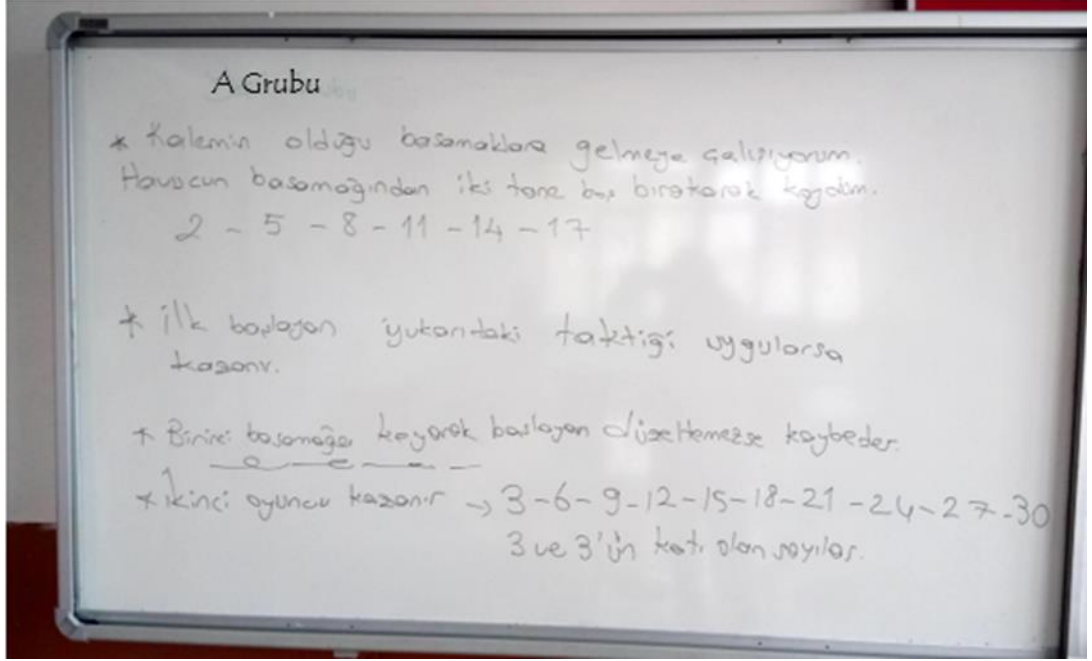 A Grubu
* Kalemin olduğu basamaklara gelmeye çalışıyorum.
Havucun basamağından iki tane boş bırakarak koydum.
2 - 5 - 8 - 11 - 14 - 17
* İlk başlayan yukarıdaki taktiği uygularsa
kazanır.
* Birinci basamağa koyarak başlayan düzeltemezse kaybeder.
* İkinci oyuncu kazanır → 3-6-9-12-15-18-21-24-27-30
3 ve 3'ün katı olan sayılar.